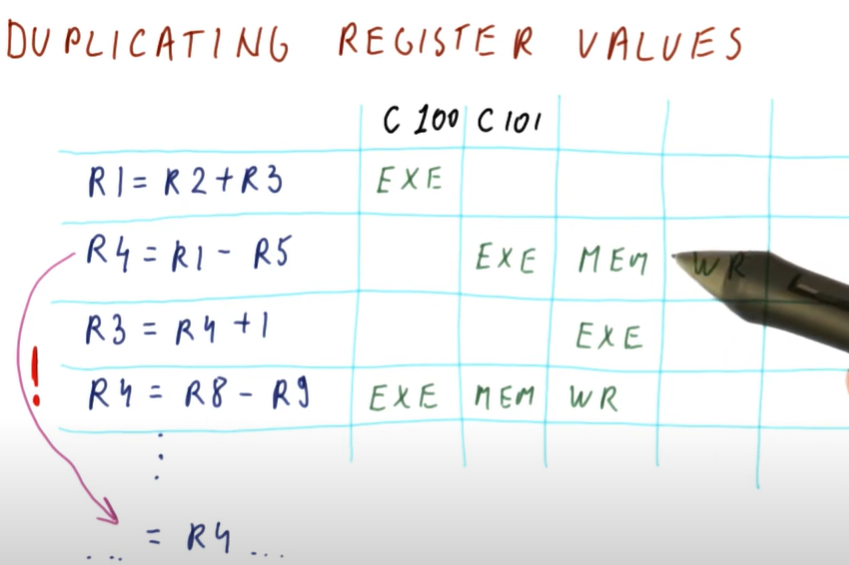 DUPLICATING REGISTER VALUES
C 100 C 101
R1 = R2 + R3 EXE
R4 = R1 - R5 EXE MEM WR
R3 = R4 + 1 EXE
R4 = R8 - R9 EXE MEM WR
!
⋮
... = R4 ...